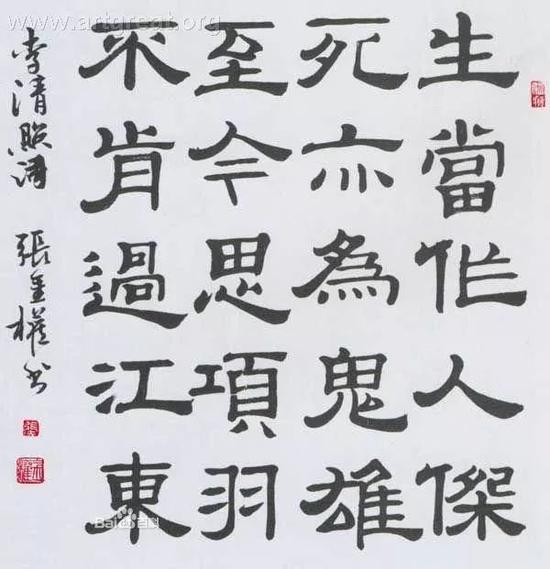 www.artgreat.org
生當作人傑
死亦為鬼雄
至今思項羽
不肯過江東
李清照詩 張金權书
Bai百科